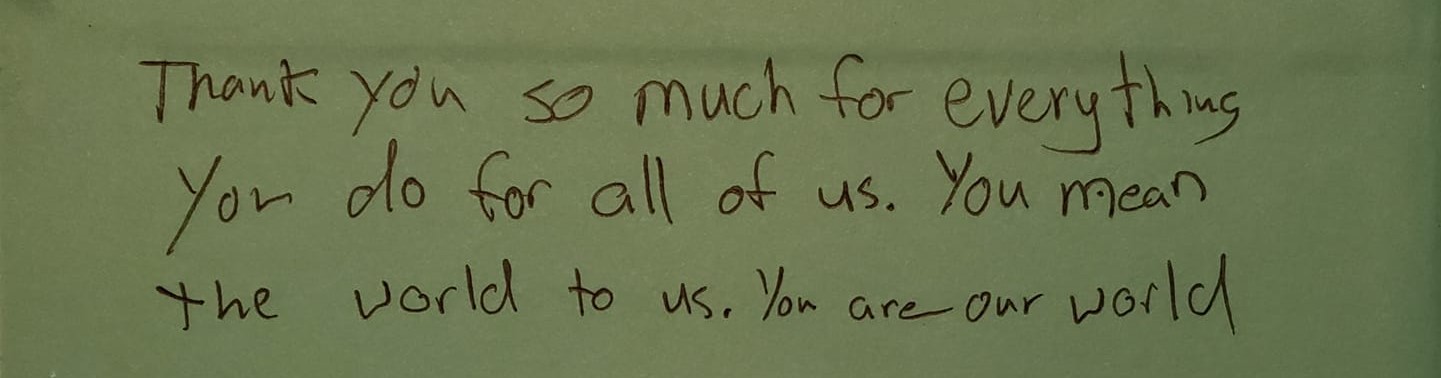 Thank you so much for everything
you do for all of us. You mean
the world to us. You are our world